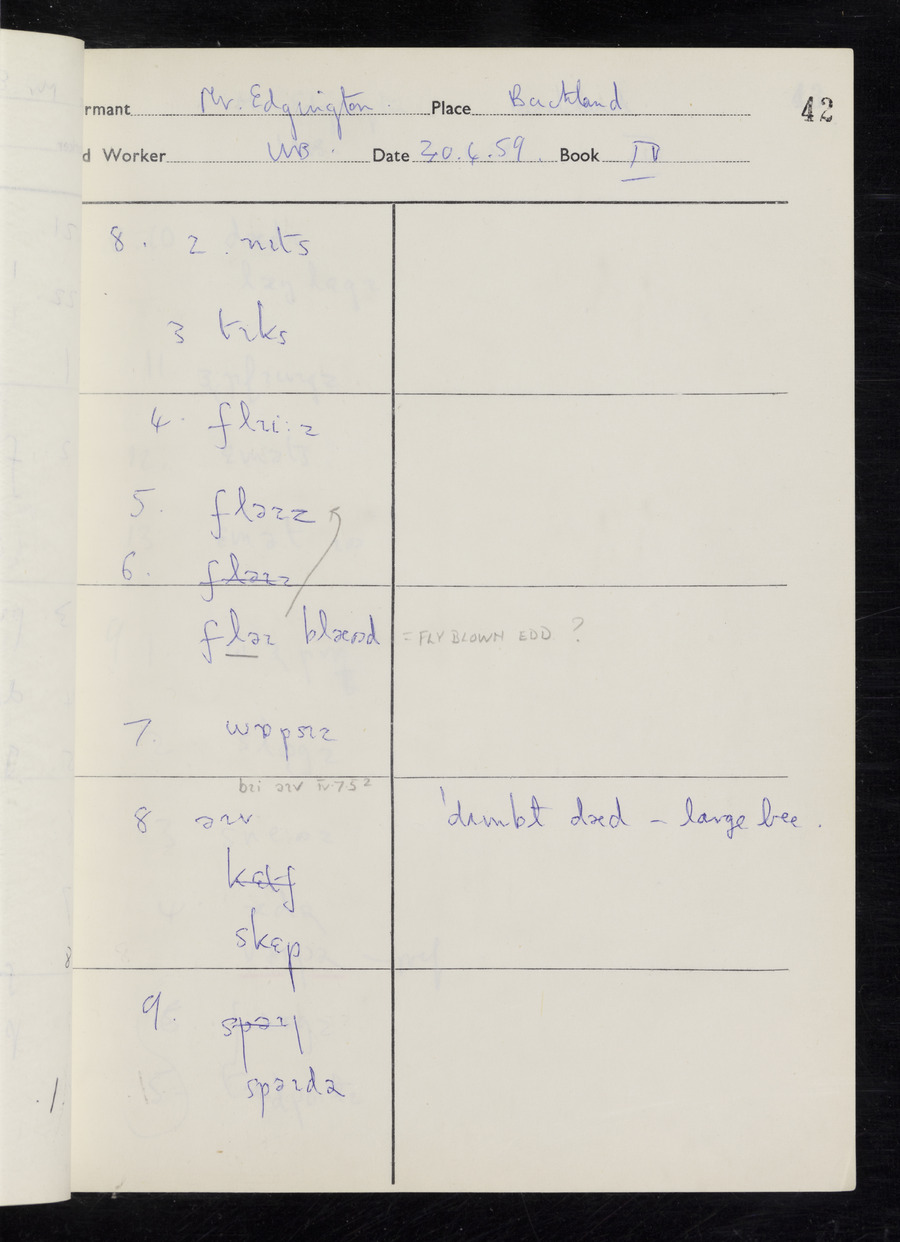 rmant Mr. Edginton Place Buckland 42
d Worker WB. Date 30.6.59 Book IV
8. 2. nɪts
3 tɪks
4. flɪi:z
5. fləɪz
6. fləɪz
fləɪ blæʊd = FLY BLOWN EDD ?
7. wɒpsɪz
bɪi əɪv IV.7.5²
8 əɪv 'dʌmbɫ dæd – large bee.
kɛɪf
skɛp
9. spəɪ
spəɪdə
8
.1.